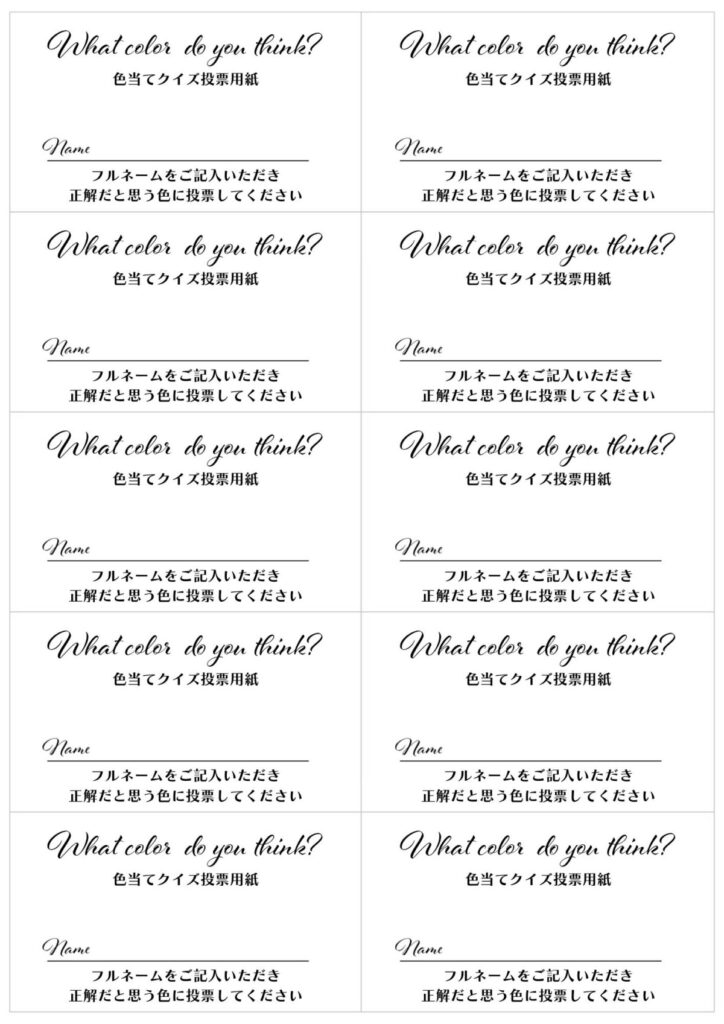 What color do you think?
色当てクイズ投票用紙
Name
フルネームをご記入いただき
正解だと思う色に投票してください
What color do you think?
色当てクイズ投票用紙
Name
フルネームをご記入いただき
正解だと思う色に投票してください
What color do you think?
色当てクイズ投票用紙
Name
フルネームをご記入いただき
正解だと思う色に投票してください
What color do you think?
色当てクイズ投票用紙
Name
フルネームをご記入いただき
正解だと思う色に投票してください
What color do you think?
色当てクイズ投票用紙
Name
フルネームをご記入いただき
正解だと思う色に投票してください
What color do you think?
色当てクイズ投票用紙
Name
フルネームをご記入いただき
正解だと思う色に投票してください
What color do you think?
色当てクイズ投票用紙
Name
フルネームをご記入いただき
正解だと思う色に投票してください
What color do you think?
色当てクイズ投票用紙
Name
フルネームをご記入いただき
正解だと思う色に投票してください
What color do you think?
色当てクイズ投票用紙
Name
フルネームをご記入いただき
正解だと思う色に投票してください
What color do you think?
色当てクイズ投票用紙
Name
フルネームをご記入いただき
正解だと思う色に投票してください